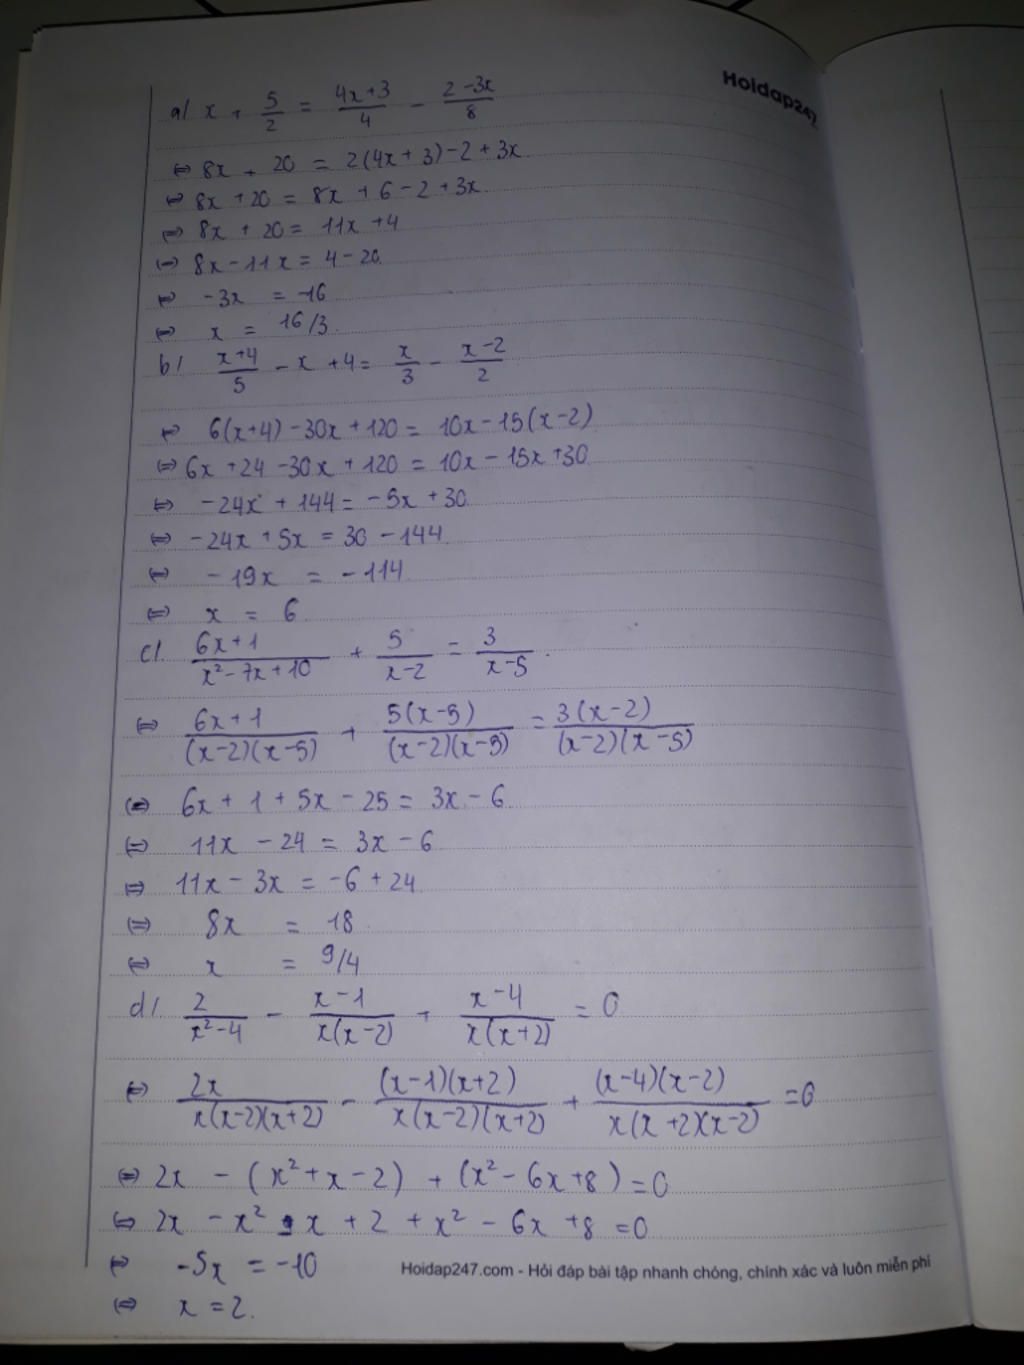 Hoidap247
a/ x + 5/2 = (4x+3)/4 - (2-3x)/8
⇔ 8x + 20 = 2(4x+3)-2+3x
⇔ 8x +20 = 8x + 6 - 2 + 3x
⇔ 8x + 20 = 11x +4
⇔ 8x - 11x = 4 - 20
⇔ -3x = -16
⇔ x = 16/3
b/ (x+4)/5 - x + 4 = x/3 - (x-2)/2
⇔ 6(x+4) - 30x + 120 = 10x - 15(x-2)
⇔ 6x +24 -30x + 120 = 10x - 15x +30
⇔ -24x + 144 = -5x +30
⇔ -24x +5x = 30 - 144
⇔ -19x = -114
⇔ x = 6
c/ (6x+1)/(x²-7x+10) + 5/(x-2) = 3/(x-5) .
⇔ (6x+1)/((x-2)(x-5)) + 5(x-5)/((x-2)(x-5)) = 3(x-2)/((x-2)(x-5))
⇔ 6x + 1 + 5x - 25 = 3x - 6
⇔ 11x - 24 = 3x - 6
⇔ 11x - 3x = -6 + 24
⇔ 8x = 18
⇔ x = 9/4
d/ 2/(x²-4) - (x-1)/(x(x-2)) + (x-4)/(x(x+2)) = 0
⇔ 2x/(x(x-2)(x+2)) - (x-1)(x+2)/(x(x-2)(x+2)) + (x-4)(x-2)/(x(x+2)(x-2)) = 0
⇔ 2x - (x² + x - 2) + (x² - 6x +8) = 0
⇔ 2x - x² - x + 2 + x² - 6x +8 = 0
⇔ -5x = -10
⇔ x = 2.
Hoidap247.com - Hỏi đáp bài tập nhanh chóng, chính xác và luôn miễn phí